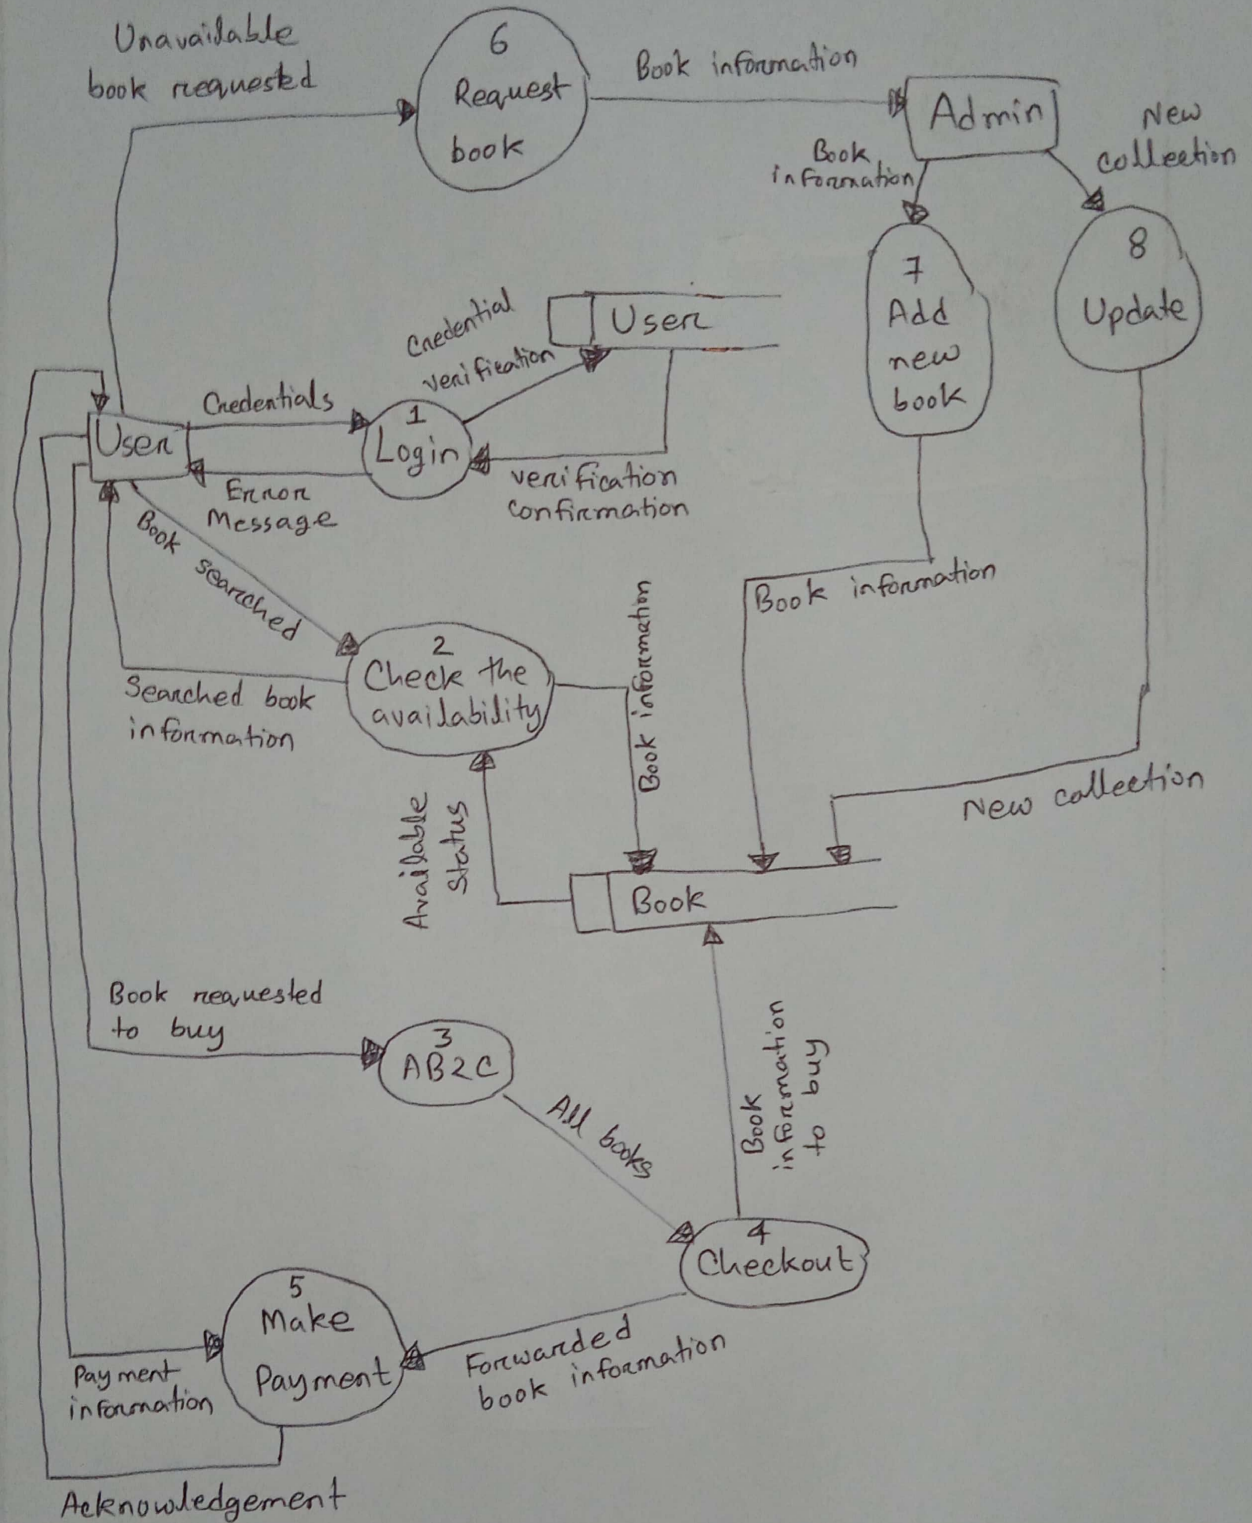 Unavailable
book requested
6
Request
book
Book information
Admin
New
collection
Book
information
7
Add
new
book
8
Update
Credential
verification
User
User
Credentials
1
Login
Error
Message
verification
confirmation
Book searched
Book information
2
Check the
availability
Searched book
information
Book information
Available
Status
New collection
Book
Book requested
to buy
3
AB2C
All books
Book
information
to buy
4
Checkout
5
Make
Payment
Forwarded
book information
Payment
information
Acknowledgement